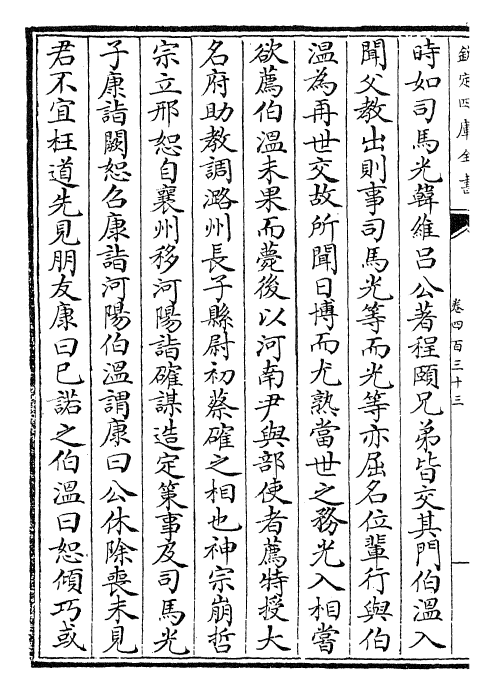 欽定四庫全書
卷四百三十三
時如司馬光韓維呂公著程頤兄弟皆交其門伯溫入
聞父教出則事司馬光等而光等亦屈名位輩行與伯
溫為再世交故所聞日博而尤熟當世之務光入相嘗
欲薦伯溫未果而薨後以河南尹與部使者薦特授大
名府助教調潞州長子縣尉初蔡確之相也神宗崩哲
宗立邢恕自襄州移河陽詣確謀造定策事及司馬光
子康詣闕恕召康詣河陽伯溫謂康曰公休除喪未見
君不宜枉道先見朋友康曰已諾之伯溫曰恕傾巧或